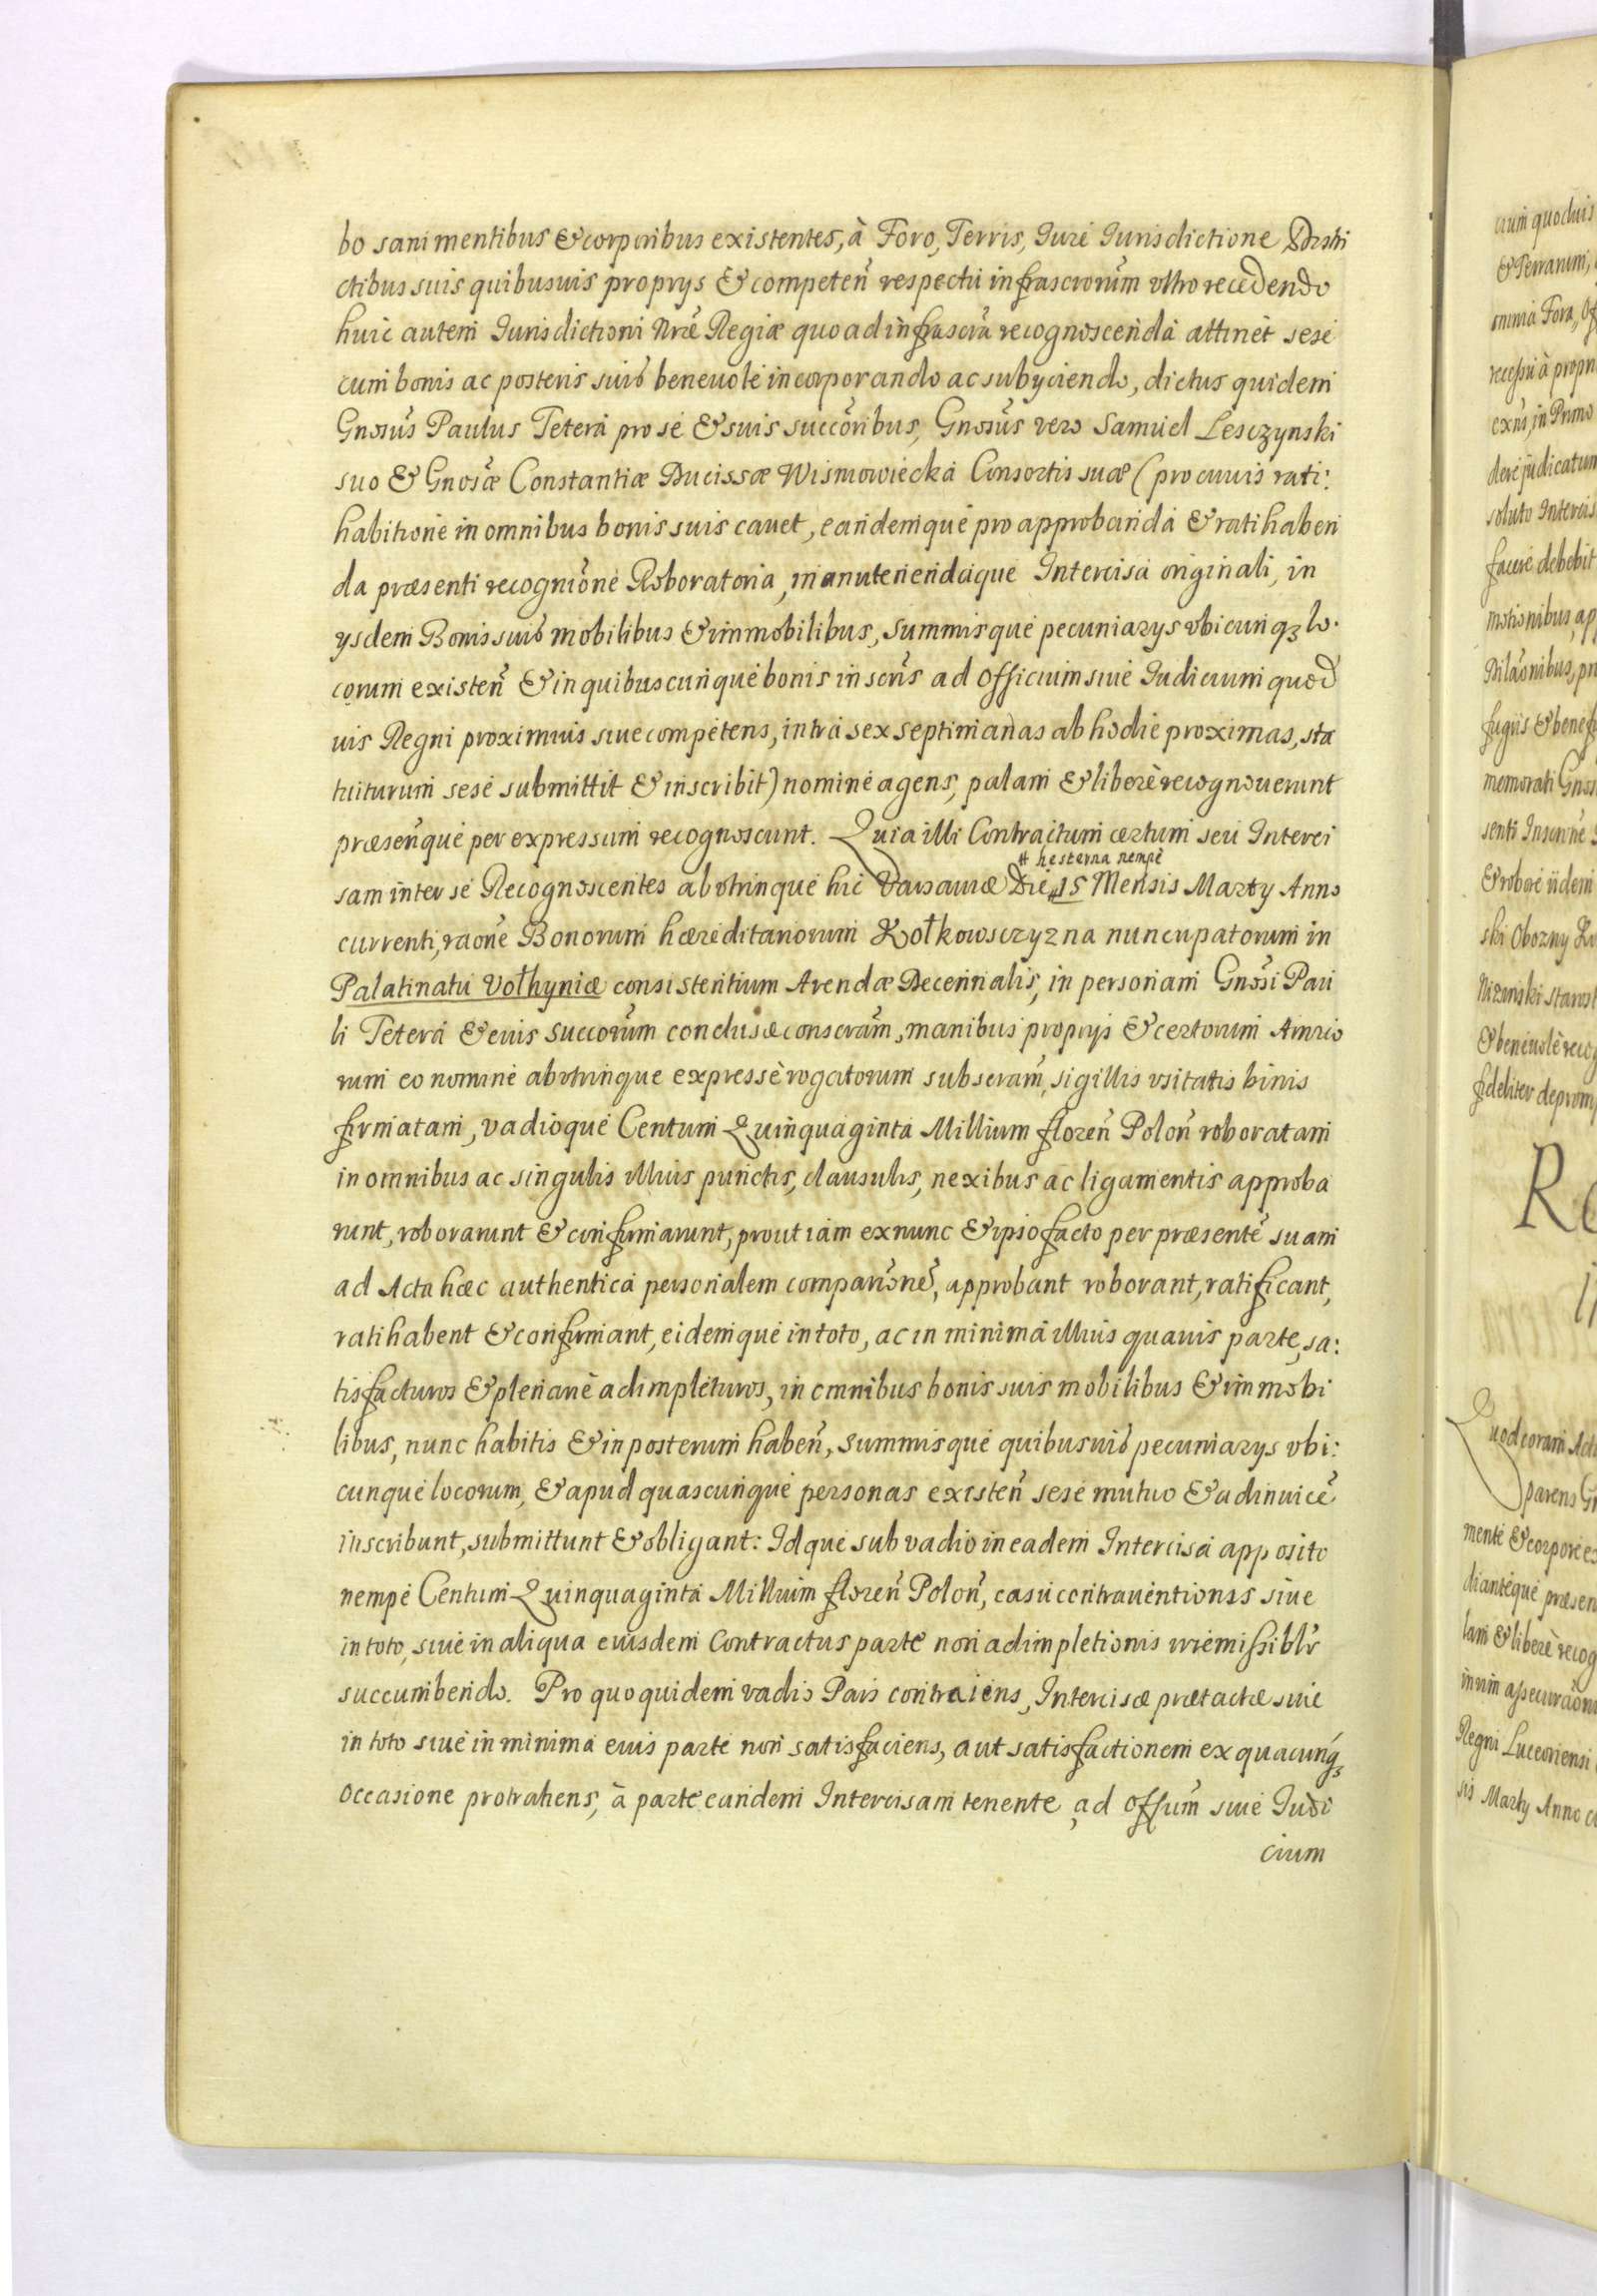 bo sani mentibus & corporibus existentes, à Foro, Terris, Iure Iurisdictione Distri
ctibus suis quibusuis proprys & competeñ respectu infrascrorum vltro recedendo
huic autem Iurisdictioni Nræ Regiæ quo ad infrascra recognoscenda attinet sese
cum bonis ac posteris suis beneuole incorporando ac subyciendo, dictus quidem
Gnosus Paulus Tetera pro se & suis succoribus, Gnosus vero Samuel Lesczynski
suo & Gnosæ Constantiæ Ducissæ Wisniowiecka Consortis suæ (pro cuius rati:
habitione in omnibus bonis suis cauet, eandemque pro approbanda & ratihaben
da præsenti recognione Roboratoria, manutenendaque Intercisa originali, in
ysdem Bonis suis mobilibus & immobilibus, summisque pecuniarys vbicunqȝ lo.
corum existeñ & in quibuscunque bonis inscris ad Officium siue Iudicium quod
uis Regni proximius siue competens, intra sex septimanas ab hodie proximas, sta
tuiturum sese submittit & inscribit) nomine agens, palam & libere recognouerunt
præseñque per expressum recognoscunt. Quia illi Contractum certum seu Interci
sam inter se Recognoscentes abvtrinque hic Varsauiæ Die # 15 Mensis Marty Anno
# hesterna nempe
currenti, raone Bonorum hæreditariorum Kołkowsczyzna nuncupatorum in
Palatinatu Vołhyniæ consistentium Arendæ Decennalis, in personam Gnosi Pau
li Tetera & eius succorum conclusæ conscram, manibus proprys & certorum Amico
rum eo nomine abvtrinque expresse rogatorum subscram, sigillis vsitatis binis
firmatam, vadioque Centum Quinquaginta Millium floreñ Poloñ roboratam
in omnibus ac singulis illius punctis, clausulis, nexibus ac ligamentis approba
runt, roborarunt & confirmarunt, prout iam ex nunc & ipso facto per præsente suam
ad Acta hæc authentica personalem comparone, approbant roborant, ratificant,
ratihabent & confirmant, eidemque in toto, ac in minima illius quauis parte, sa:
tisfacturos & plenarie adimpleturos, in omnibus bonis suis mobilibus & immobi
libus, nunc habitis & in posterum habeñ, summisque quibusuis pecuniarys vbi:
cunque locorum, & apud quascunque personas existeñ sese mutuo & adinuice
inscribunt, submittunt & obligant: Idque sub vadio in eadem Intercisa apposito
nempe Centum Quinquaginta Millium floreñ Poloñ, casu contrauentionis siue
in toto, siue in aliqua eiusdem Contractus parte non adimpletionis irremissiblr
succumbendo. Pro quo quidem vadio Pars contraiens, Intercisæ prætactæ siue
in toto siue in minima eius parte non satisfaciens, aut satisfactionem ex quacunqȝ
occasione protrahens, à parte eandem Intercisam tenente, ad Offum siue Iudi
cium